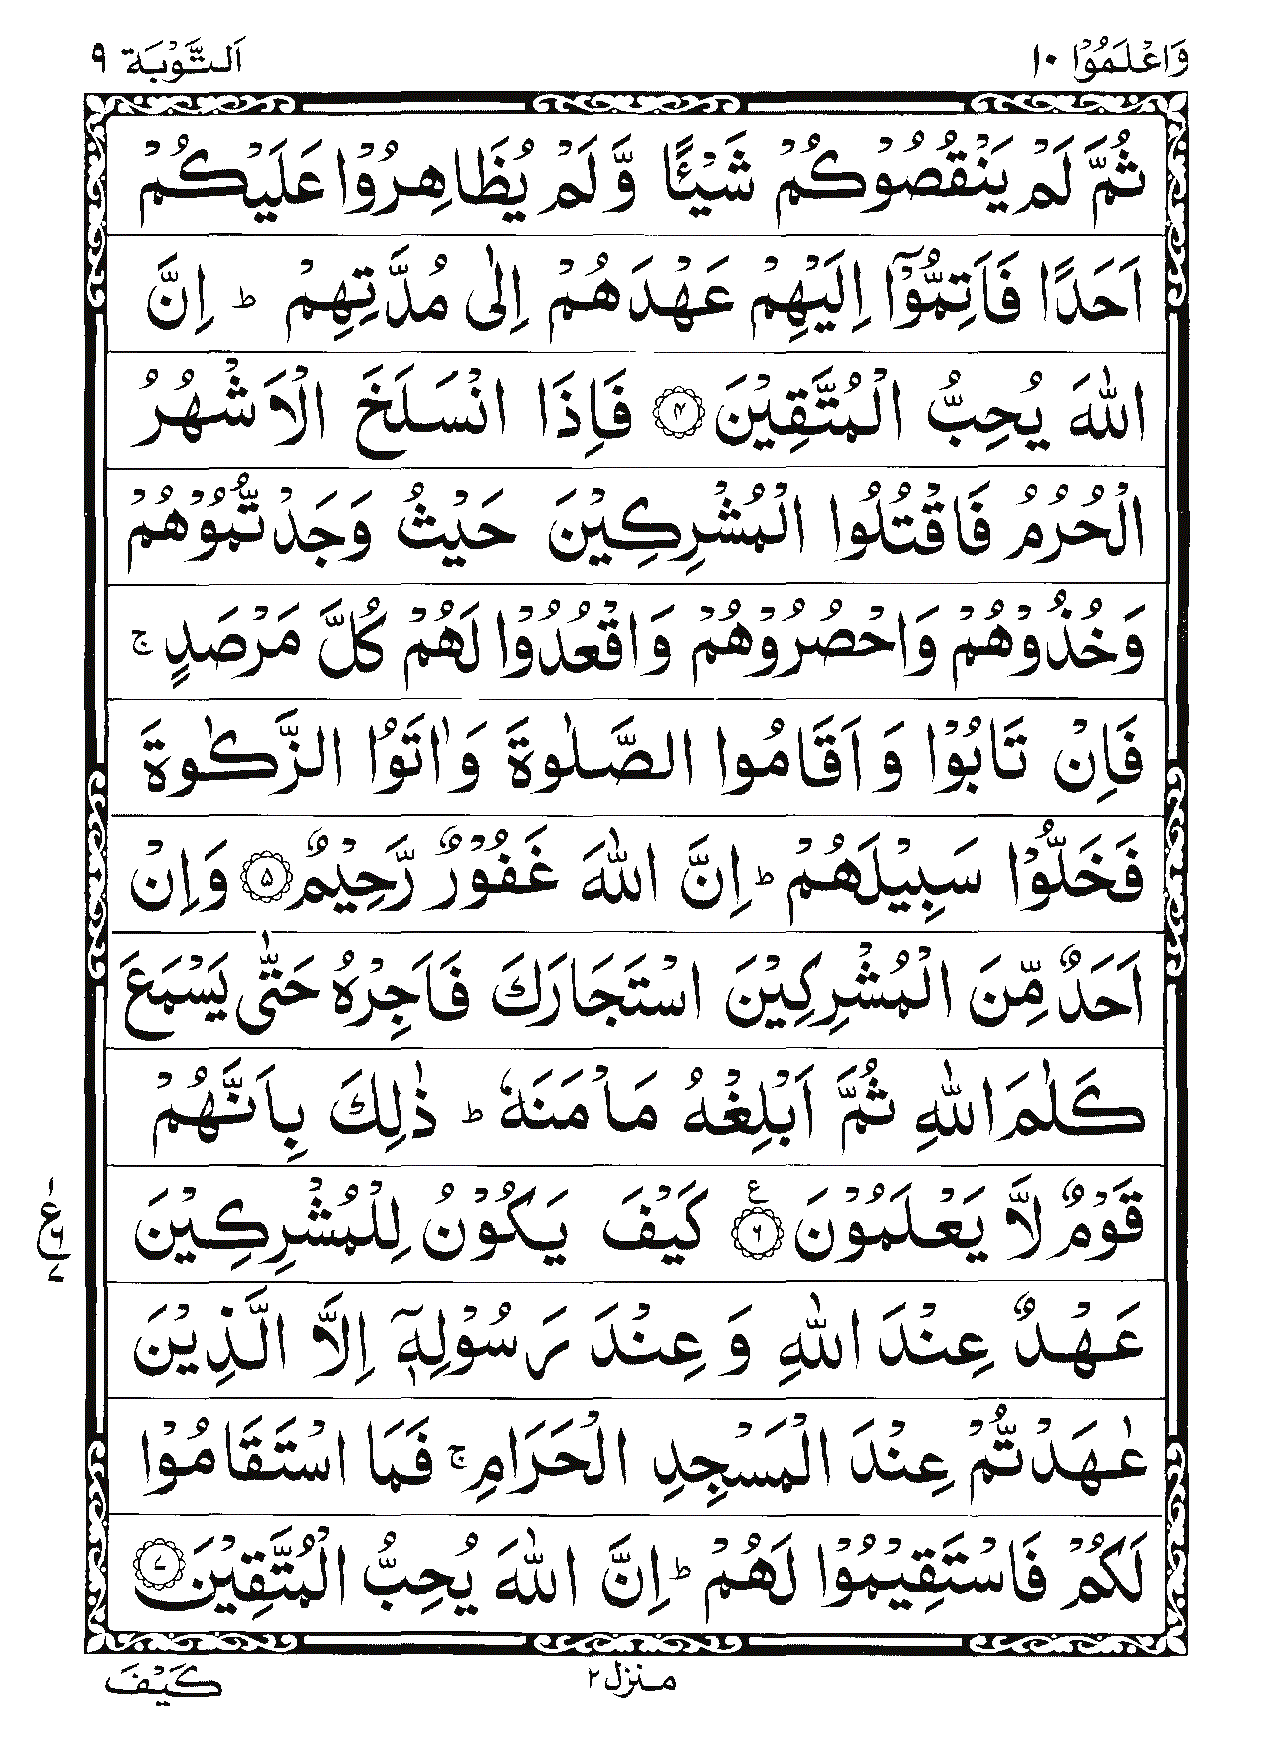 وَاعْلَمُوْۤا ١٠ اَلتَّوْبَة ٩
ثُمَّ لَمْ يَنْقُصُوْكُمْ شَيْـًٔا وَّلَمْ يُظَاهِرُوْا عَلَيْكُمْ
اَحَدًا فَاَتِمُّوْۤا اِلَيْهِمْ عَهْدَهُمْ اِلٰى مُدَّتِهِمْ ؕ اِنَّ
اللّٰهَ يُحِبُّ الْمُتَّقِيْنَ ۴ فَاِذَا انْسَلَخَ الْاَشْهُرُ
الْحُرُمُ فَاقْتُلُوا الْمُشْرِكِيْنَ حَيْثُ وَجَدْتُّمُوْهُمْ
وَخُذُوْهُمْ وَاحْصُرُوْهُمْ وَاقْعُدُوْا لَهُمْ كُلَّ مَرْصَدٍ ۚ
فَاِنْ تَابُوْا وَ اَقَامُوا الصَّلٰوةَ وَ اٰتَوُا الزَّكٰوةَ
فَخَلُّوْا سَبِيْلَهُمْ ؕ اِنَّ اللّٰهَ غَفُوْرٌ رَّحِيْمٌ ۵ وَاِنْ
اَحَدٌ مِّنَ الْمُشْرِكِيْنَ اسْتَجَارَكَ فَاَجِرْهُ حَتّٰى يَسْمَعَ
كَلٰمَ اللّٰهِ ثُمَّ اَبْلِغْهُ مَاْمَنَهٗ ؕ ذٰلِكَ بِاَنَّهُمْ
قَوْمٌ لَّا يَعْلَمُوْنَ ۶ ع كَيْفَ يَكُوْنُ لِلْمُشْرِكِيْنَ
ع ١ ۶ ۷
عَهْدٌ عِنْدَ اللّٰهِ وَ عِنْدَ رَسُوْلِهٖۤ اِلَّا الَّذِيْنَ
عٰهَدْتُّمْ عِنْدَ الْمَسْجِدِ الْحَرَامِ ۚ فَمَا اسْتَقَامُوْا
لَكُمْ فَاسْتَقِيْمُوْا لَهُمْ ؕ اِنَّ اللّٰهَ يُحِبُّ الْمُتَّقِيْنَ ۷
منزل ٢ كَيْفَ